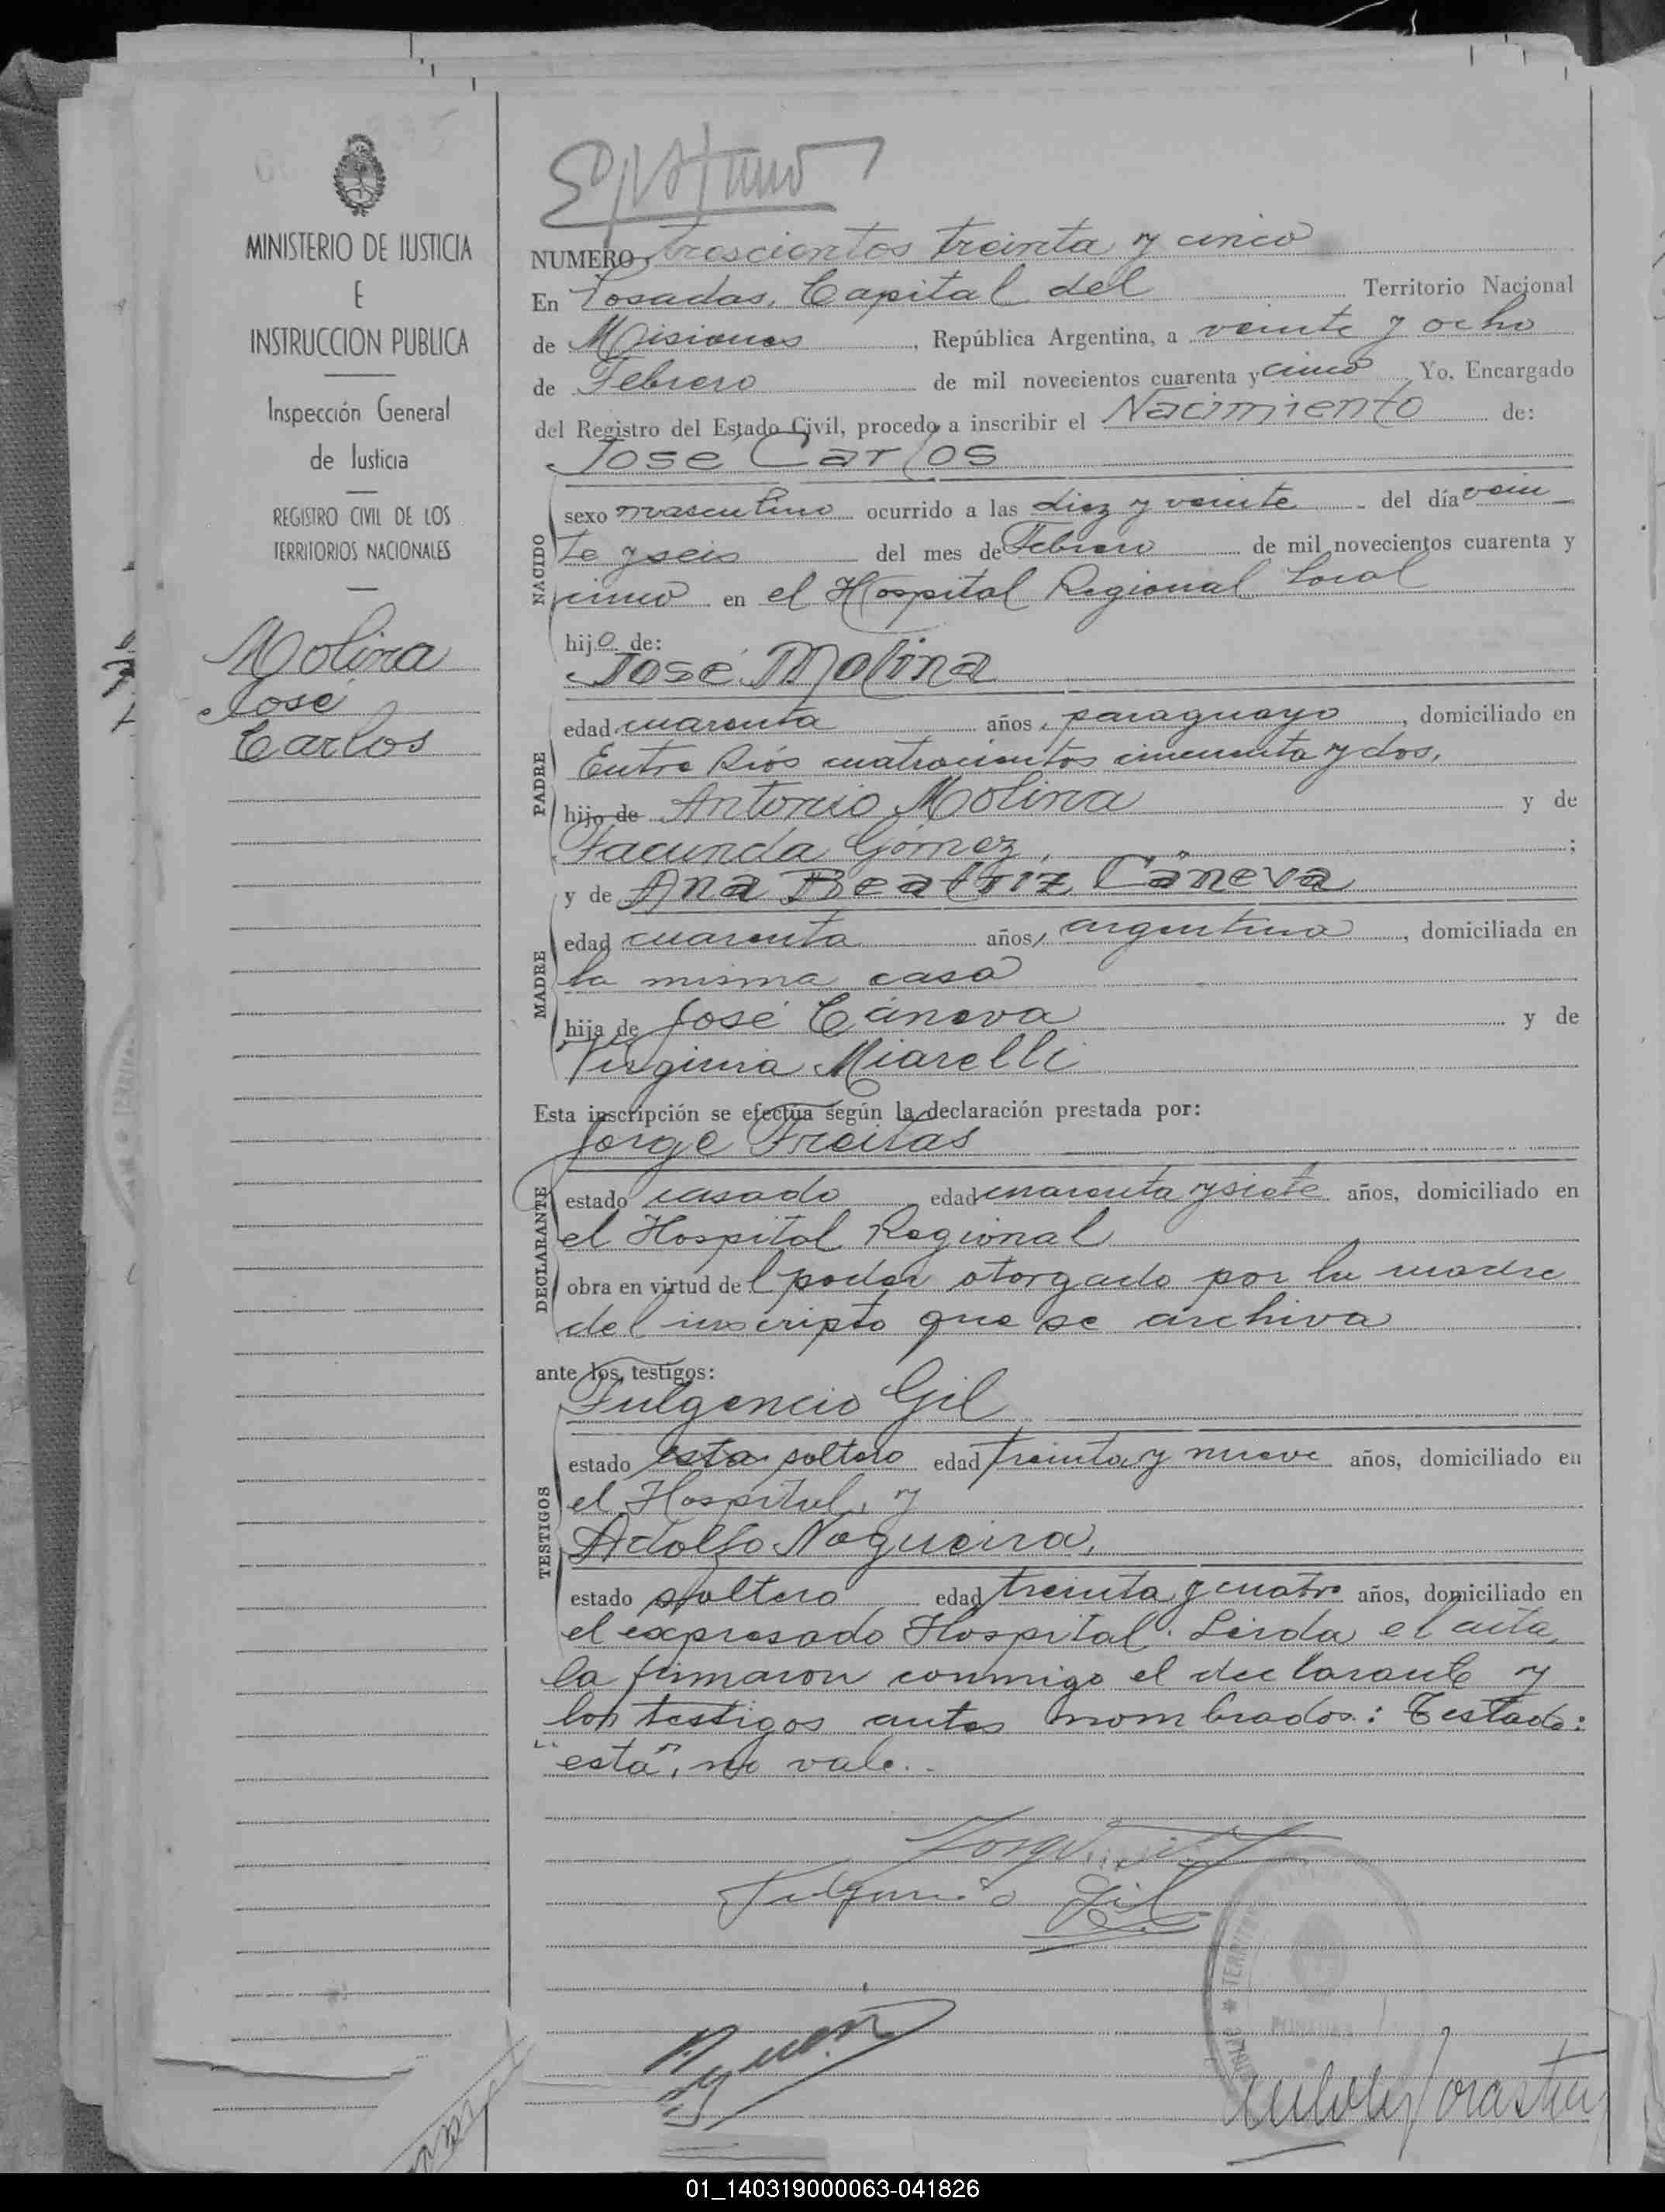 MINISTERIO DE JUSTICIA
E
INSTRUCCION PUBLICA
Inspección General
de Justicia
REGISTRO CIVIL DE LOS
TERRITORIOS NACIONALES
Molina
José
Carlos
NUMERO trescientos treinta y cinco
En Posadas, Capital del Territorio Nacional
de Misiones, República Argentina, a veinte y ocho
de Febrero de mil novecientos cuarenta y cinco Yo, Encargado
del Registro del Estado Civil, procedo a inscribir el Nacimiento de:
José Carlos
NACIDO
sexo masculino ocurrido a las diez y veinte del día vein
te y seis del mes de Febrero de mil novecientos cuarenta y
cinco en el Hospital Regional local
hijo de:
José Molina
PADRE
edad cuarenta años, paraguayo, domiciliado en
Entre Ríos cuatrocientos cincuenta y dos,
hijo de Antonio Molina y de
Facunda Gómez, ;
y de Ana Beatriz Cáneva
MADRE
edad cuarenta años, argentina, domiciliada en
la misma casa
hija de José Cáneva y de
Virginia Miarelli
Esta inscripción se efectúa según la declaración prestada por:
Jorge Freitas
DECLARANTE
estado casado edad cuarenta y siete años, domiciliado en
el Hospital Regional
obra en virtud del poder otorgado por la madre
del inscripto que se archiva
ante los testigos:
Fulgencio Gil
TESTIGOS
estado esta soltero edad treinta y nueve años, domiciliado en
el Hospital, y
Adolfo Nogueira,
estado soltero edad treinta y cuatro años, domiciliado en
el expresado Hospital. Leida el acta,
la firmaron conmigo el declarante y
los testigos antes nombrados: Testado:
"esta", no vale.
Fulgencio Gil
01_140319000063-041826